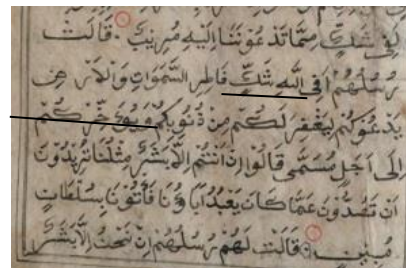 لفي شك مما تدعوننا اليه مريب قالت
رسلهم افي الله شك فاطر السموات والارض
يدعوكم ليغفر لكم من ذنوبكم ويؤخركم
الى اجل مسمى قالوا ان انتم الا بشر مثلنا تريدون
ان تصدونا عما كان يعبد اباؤنا فاتونا بسلطان
مبين قالت لهم رسلهم ان نحن الا بشر